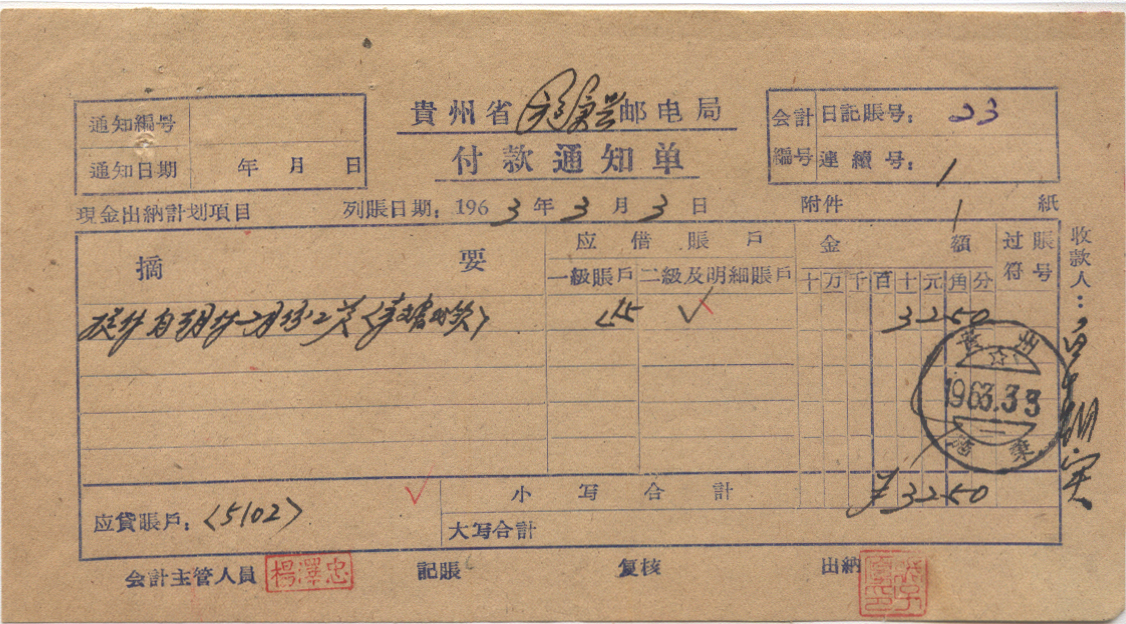 貴州省 邮电局
付款通知单
通知編号
通知日期 年 月 日
会計編号 日記賬号: 23
連續号: 1
現金出納計划項目 列賬日期: 1963年3月3日 附件 1 紙
摘要 应借賬戶 金額 过賬符号
一級賬戶 二級及明細賬戶 十万千百十元角分
3250
貴州
1963.3.3
收款人:
小写合計 ¥3250
应貸賬戶: <5102>
大写合計
会計主管人員 楊澤忠 記賬 复核 出納